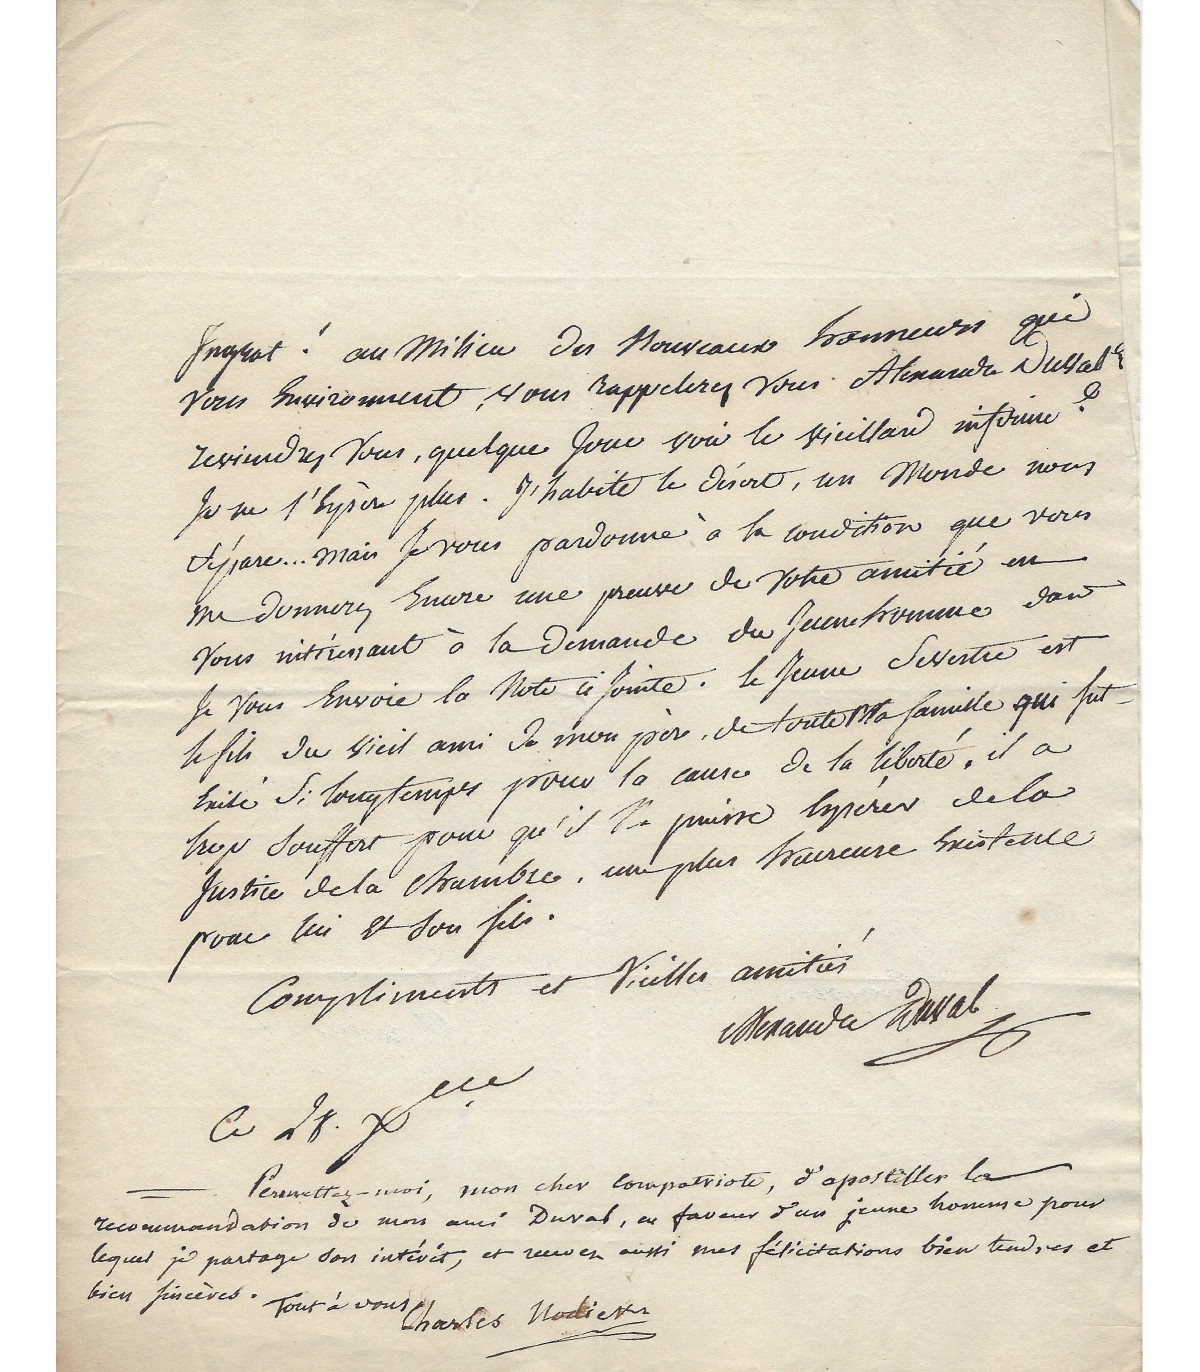 Ingrat ! au Milieu des Nouveaux honneurs qui
Vous Environnent, vous rappelerez Vous Alexandre Duval
reviendrez Vous, quelque Jour voir le vieillard infirme ?
Je ne l'Espère plus. J'habite le désert, un Monde nous
Sépare... mais Je vous pardonne à la condition que vous
me donnerez Encore une preuve de votre amitié en
Vous intéressant à la Demande du Jeune homme dont
Je Vous Envoie la Note ci Jointe. le Jeune Sevestre est
le fils du vieil ami de mon père, de toute Ma famille qui fut
Exilé Si longtemps pour la cause de la liberté, il a
trop Souffert pour qu'il ne puisse Espérer de la
Justice de la Chambre, une plus heureuse Existence
pour lui et Son fils.
Compliments et Vieilles amitiés
Alexandre Duval
Ce 28. Xbre
Permettez-moi, mon cher compatriote, d'apostiller la
recommandation de mon ami Duval, en faveur d'un jeune homme pour
lequel je partage son intérêt, et recevez aussi mes félicitations bien tendres et
bien sincères.
Tout à vous
Charles Nodier